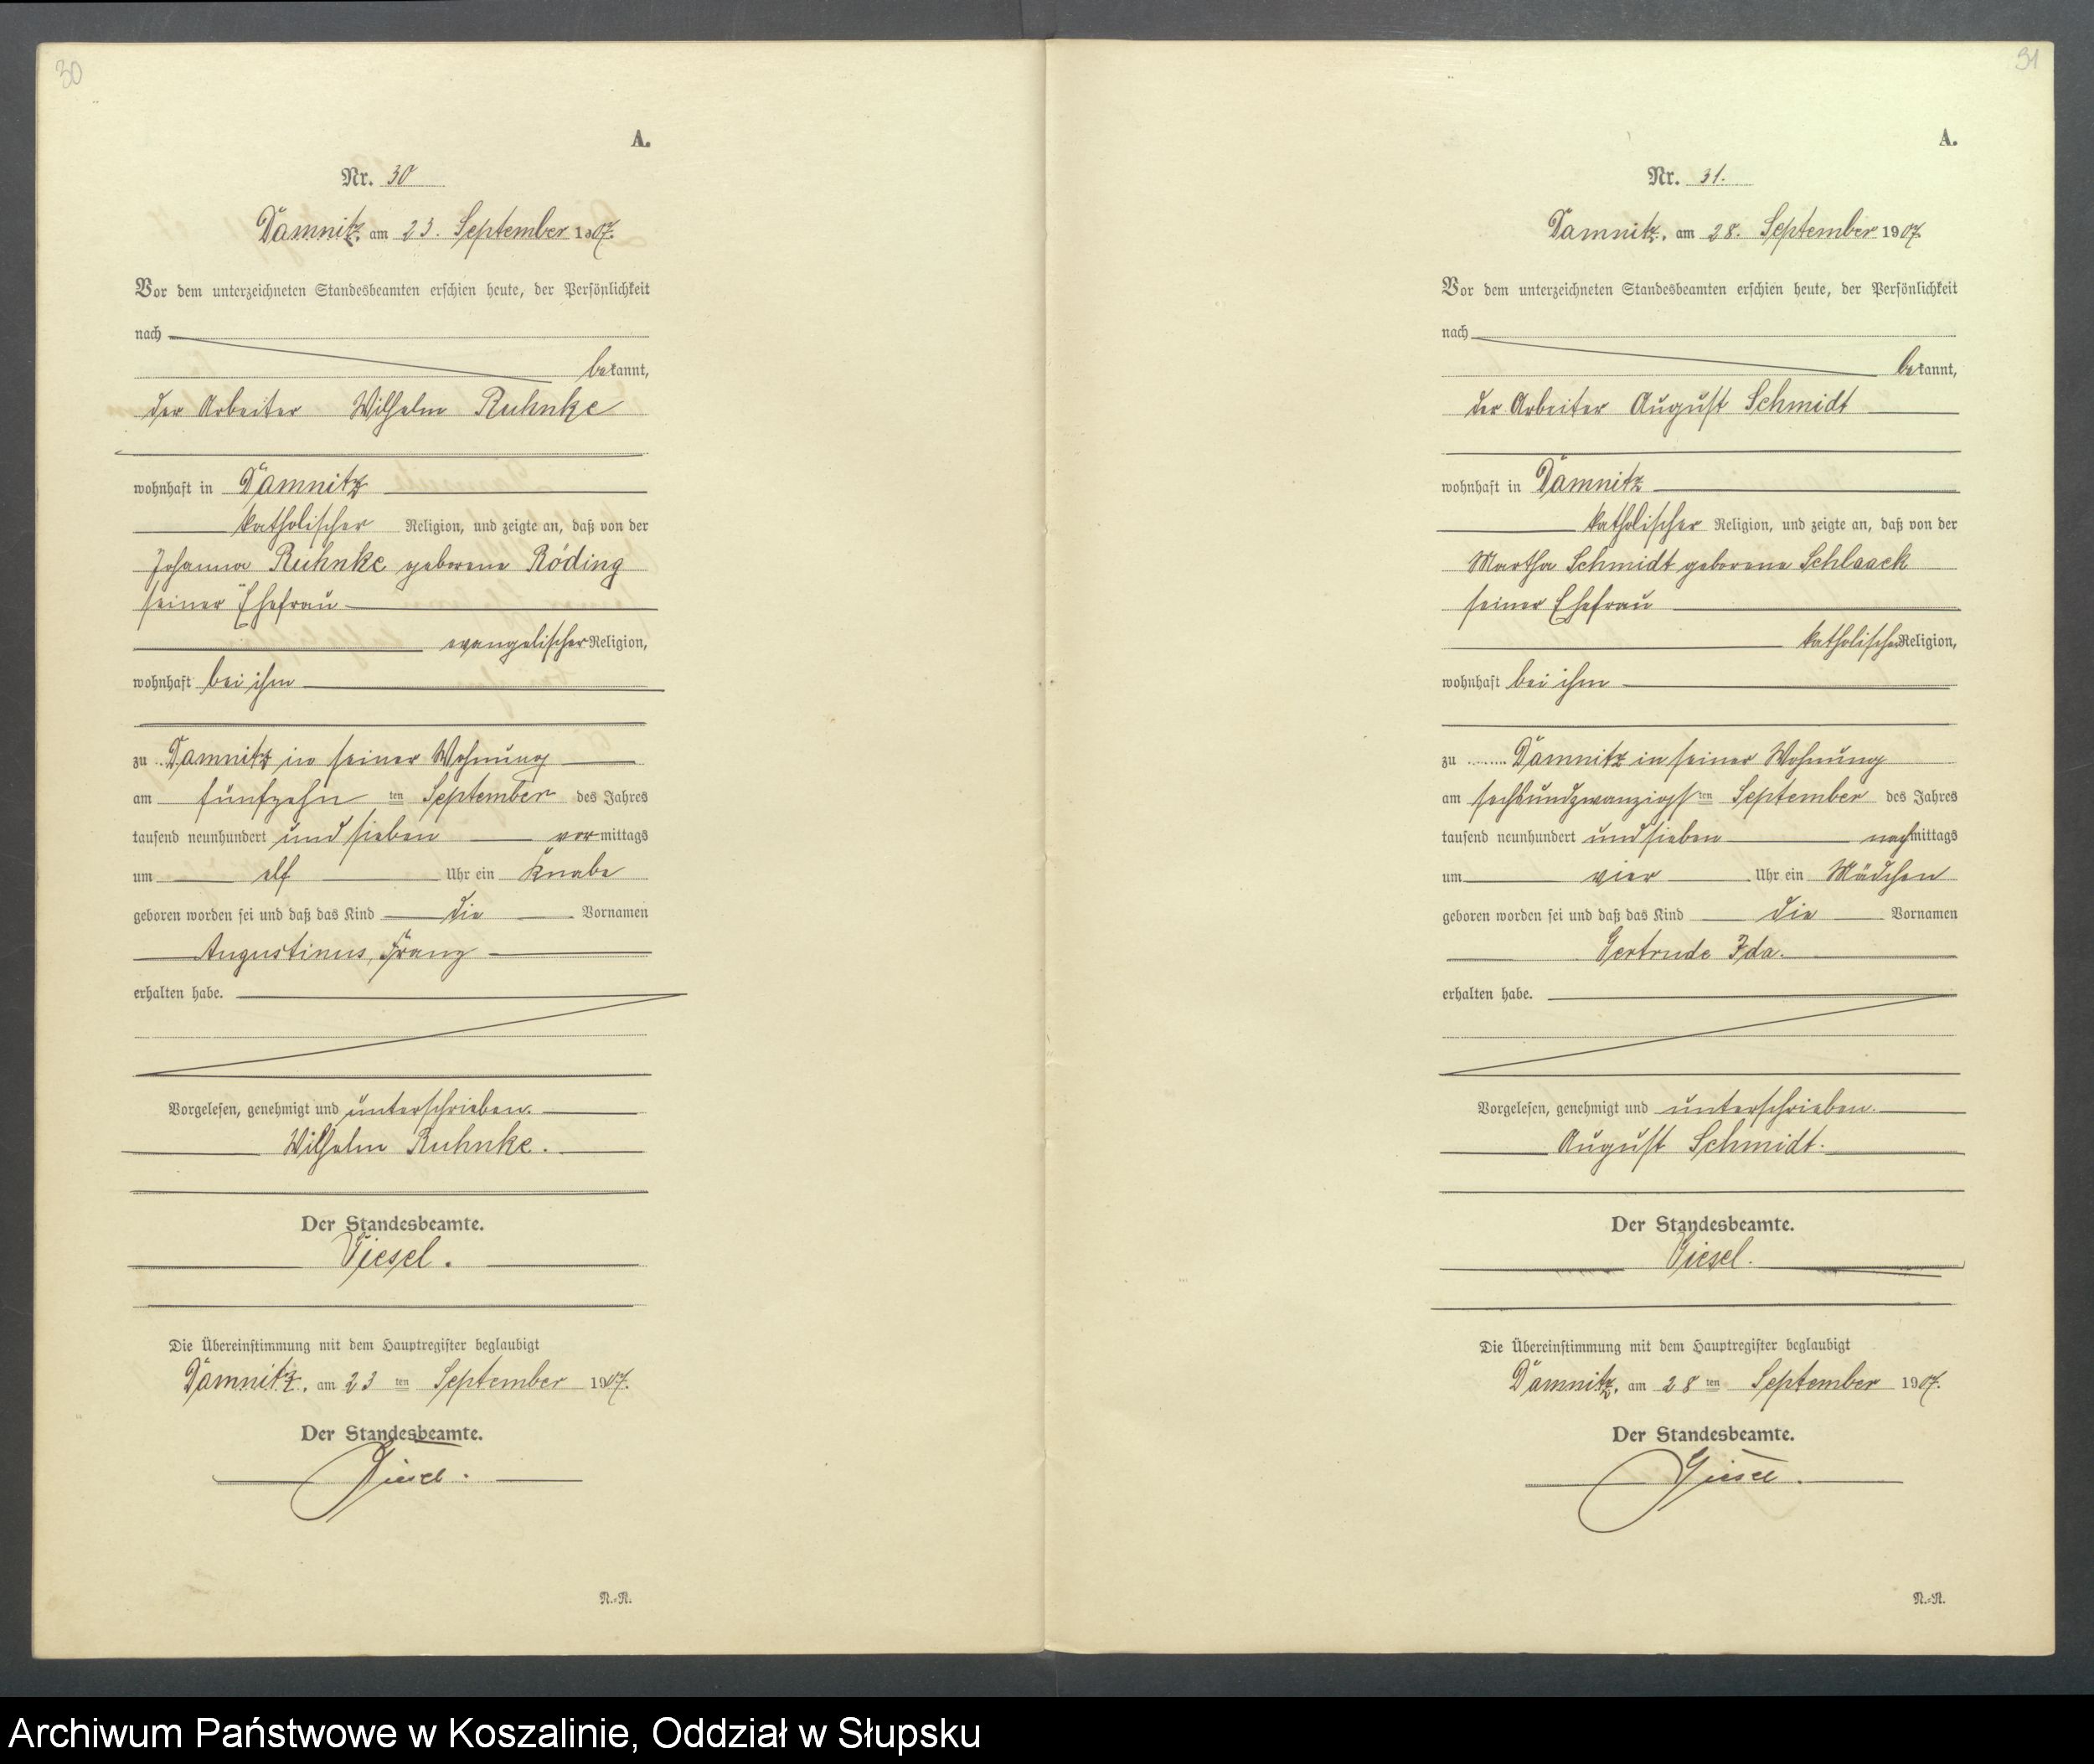 30
A.
Nr. 30
Damnitz, am 23. September 1907.
Vor dem unterzeichneten Standesbeamten erschien heute, der Persönlichkeit
nach
bekannt,
der Arbeiter Wilhelm Ruhnke
wohnhaft in Damnitz
katholischer Religion, und zeigte an, daß von der
Johanna Ruhnke geborene Röding
seiner Ehefrau
evangelischer Religion,
wohnhaft bei ihm
zu Damnitz in seiner Wohnung
am fünfzehn ten September des Jahres
tausend neunhundert und sieben vormittags
um elf Uhr ein Knabe
geboren worden sei und daß das Kind die Vornamen
Augustinus, Franz
erhalten habe.
Vorgelesen, genehmigt und unterschrieben.
Wilhelm Ruhnke.
Der Standesbeamte.
Giesel.
Die Übereinstimmung mit dem Hauptregister beglaubigt
Damnitz, am 23 ten September 1907.
Der Standesbeamte.
Giesel.
N.-R.
31
A.
Nr. 31.
Damnitz, am 28. September 1907
Vor dem unterzeichneten Standesbeamten erschien heute, der Persönlichkeit
nach
bekannt,
der Arbeiter August Schmidt
wohnhaft in Damnitz
katholischer Religion, und zeigte an, daß von der
Martha Schmidt geborene Schlaack
seiner Ehefrau
katholischer Religion,
wohnhaft bei ihm
zu Damnitz in seiner Wohnung
am sechsundzwanzigsten September des Jahres
tausend neunhundert und sieben nachmittags
um vier Uhr ein Mädchen
geboren worden sei und daß das Kind die Vornamen
Gertrude Ida.
erhalten habe.
Vorgelesen, genehmigt und unterschrieben.
August Schmidt.
Der Standesbeamte.
Giesel.
Die Übereinstimmung mit dem Hauptregister beglaubigt
Damnitz, am 28 ten September 1907.
Der Standesbeamte.
Giesel.
N.-R.
Archiwum Państwowe w Koszalinie, Oddział w Słupsku